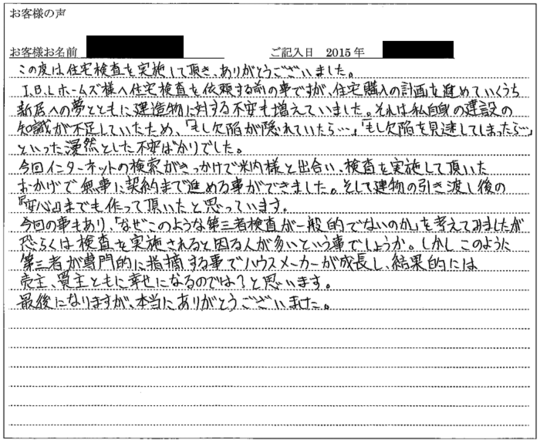 お客様の声
お客様お名前 ご記入日 2015年
この度は住宅検査を実施して頂き、ありがとうございました。
I.B.Lホームズ様へ住宅検査を依頼する前の事ですが、住宅購入の計画を進めていくうち
新居への夢とともに建造物に対する不安も増えていました。それは私自身の建設の
知識が不足していたため、「もし欠陥が隠れていたら…」「もし欠陥を見逃してしまったら…」
といった漫然とした不安ばかりでした。
今回インターネットの検索がきっかけで米内様と出合い、検査を実施して頂いた
おかげで無事に契約まで進める事ができました。そして建物の引き渡し後の
『安心』までも作って頂いたと思っています。
今回の事もあり、「なぜこのような第三者検査が一般的でないのか」を考えてみましたが
恐らくは検査を実施されると困る人が多いという事でしょうか。しかしこのように
第三者が専門的に指摘する事でハウスメーカーが成長し、結果的には
売主、買主ともに幸せになるのでは?と思います。
最後になりますが、本当にありがとうございました。